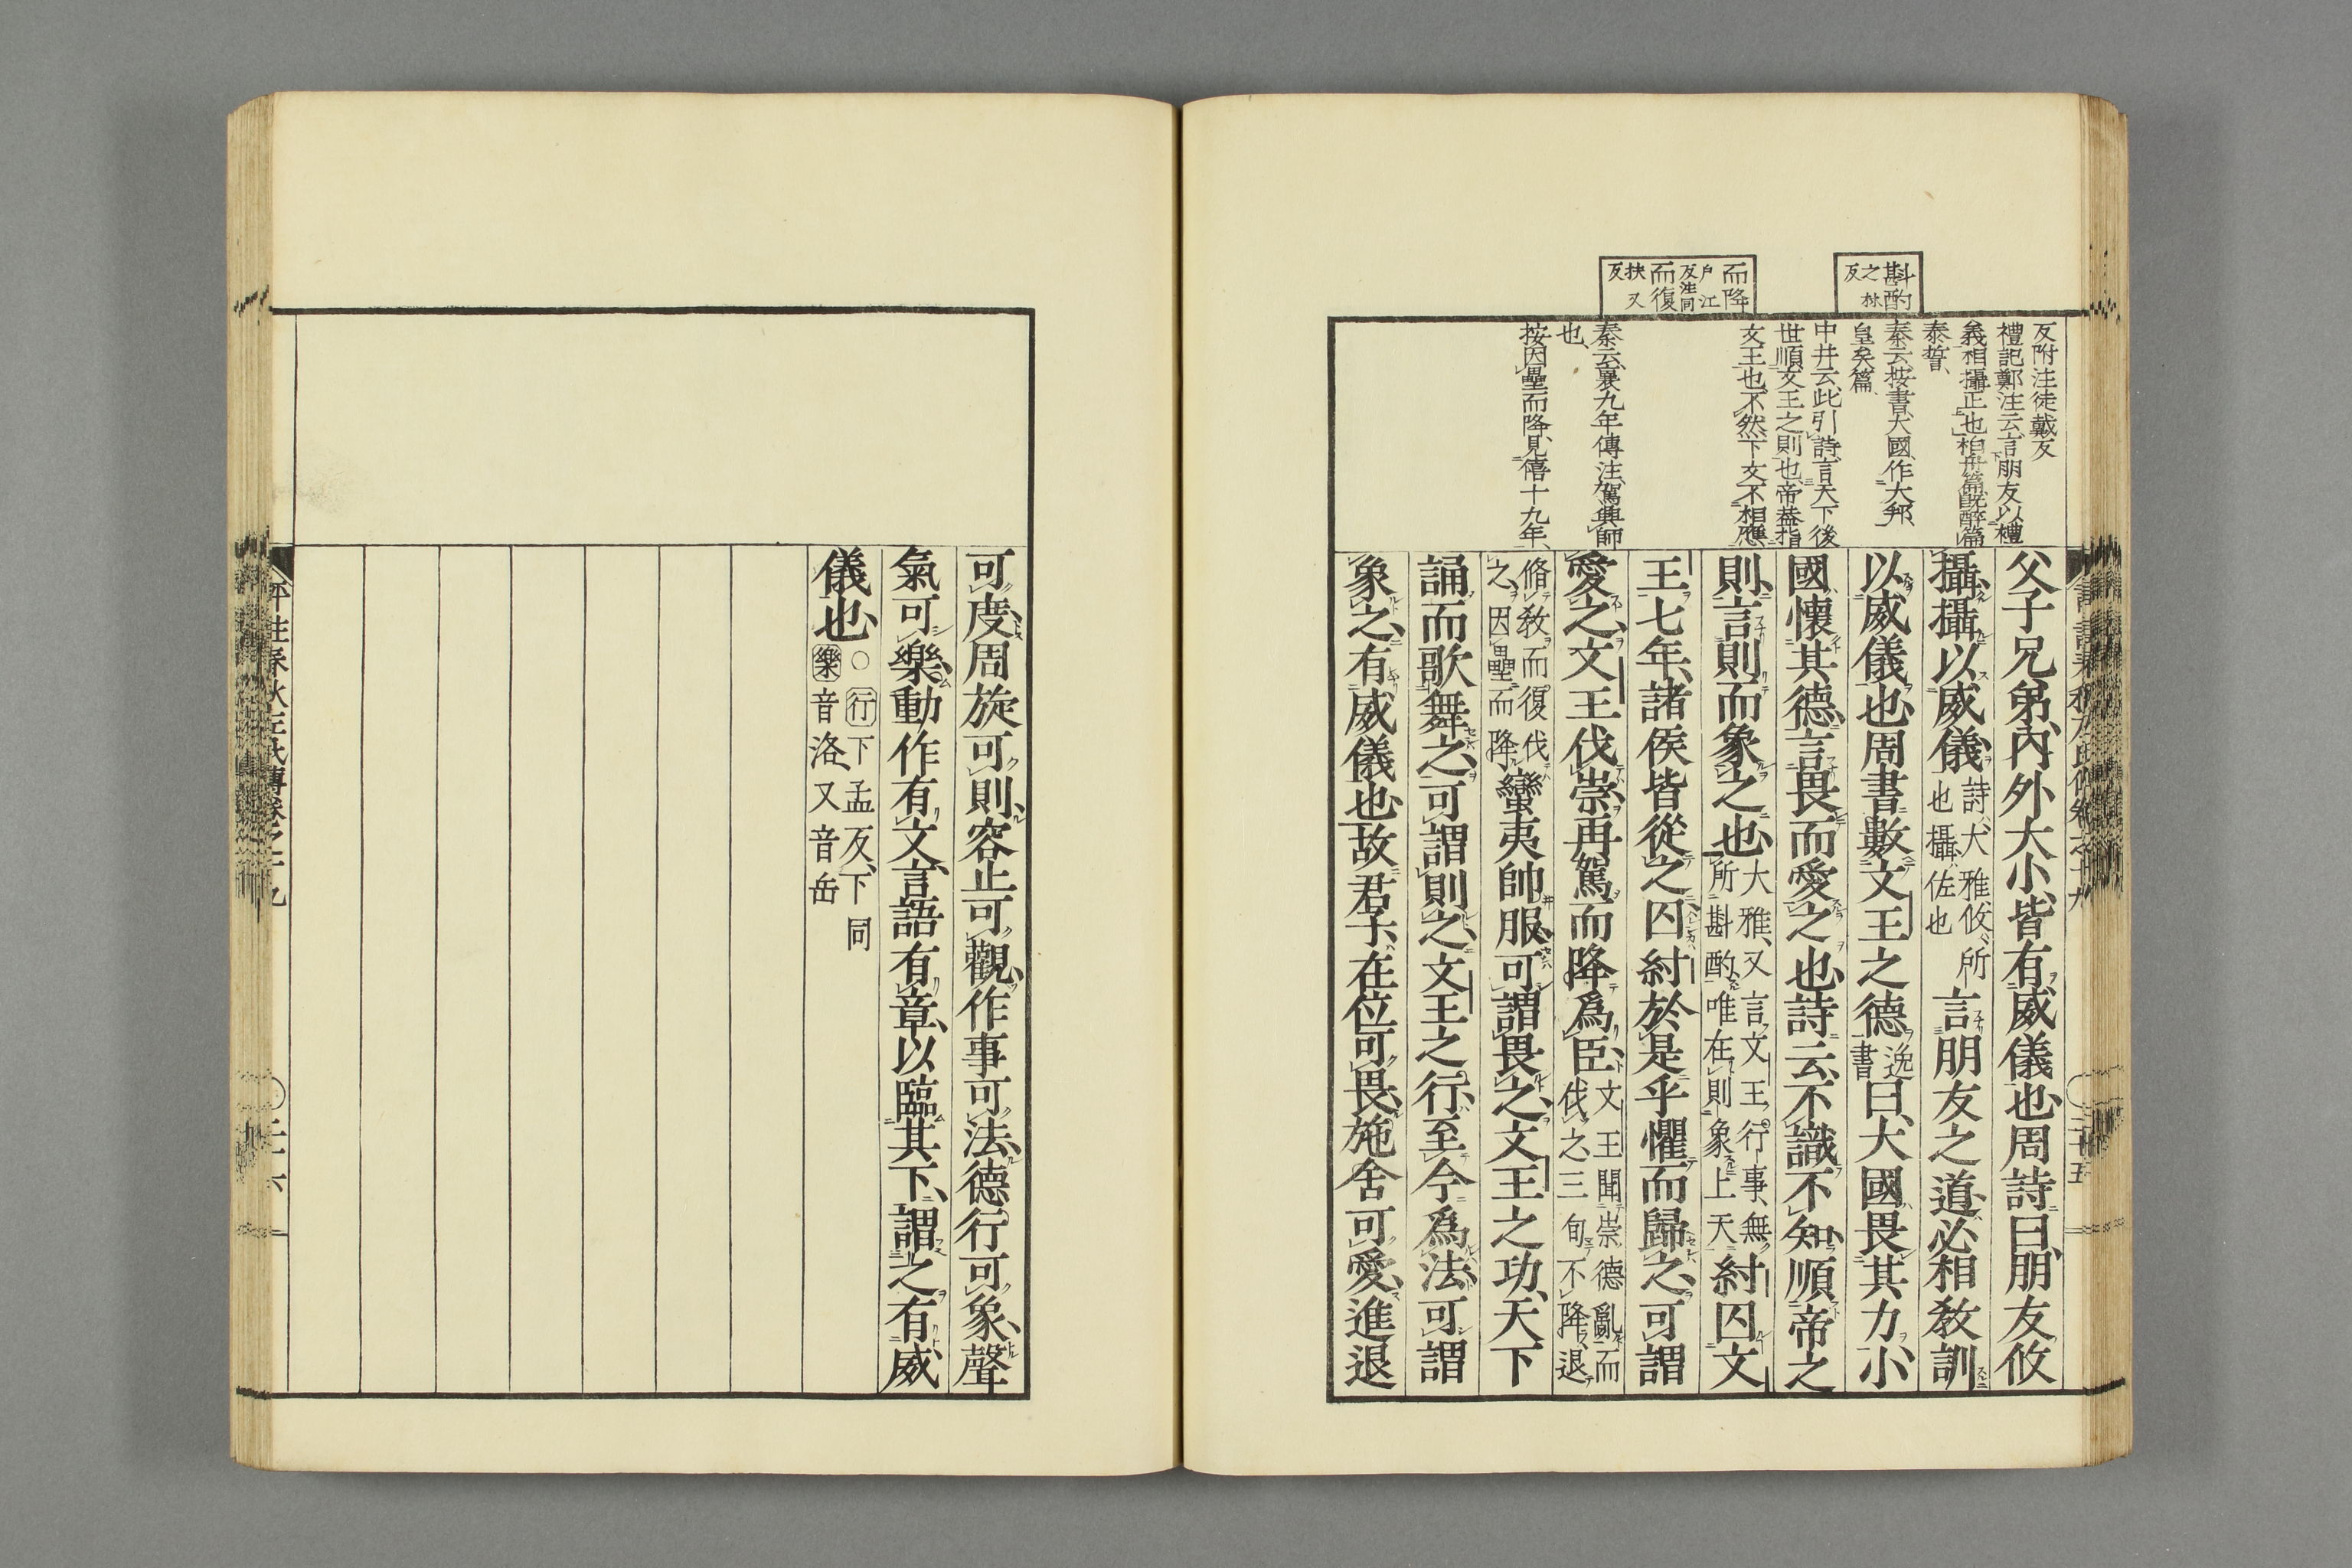 斟酌之林反
而降戶江反注同而復扶又反
反附注徒戴反
禮記鄭注云言朋友以禮
義相攝正也柏舟篇旣醉篇
泰誓
秦云按書大國作大邦
皇矣篇
中井云此引詩言天下後
世順文王之則也帝蓋指
文王也不然下文不相應
秦云襄九年傳注駕興師
也
按因壘而降見僖十九年
父子兄弟內外大小皆有威儀也周詩曰朋友攸
攝攝以威儀詩大雅攸所也攝佐也言朋友之道必相敎訓
以威儀也周書數文王之德逸書曰大國畏其力小
國懷其德言畏而愛之也詩云不識不知順帝之
則言則而象之也大雅又言文王行事無所斟酌唯在則象上天紂囚文
王七年諸侯皆從之囚紂於是乎懼而歸之可謂
愛之文王伐崇再駕而降爲臣文王聞崇德亂而伐之三旬不降退
脩敎而復伐之因壘而降蠻夷帥服可謂畏之文王之功天下
誦而歌舞之可謂則之文王之行至今爲法可謂
象之有威儀也故君子在位可畏施舍可愛進退
可度周旋可則容止可觀作事可法德行可象聲
氣可樂動作有文言語有章以臨其下謂之有威
儀也○行下孟反下同樂音洛又音岳